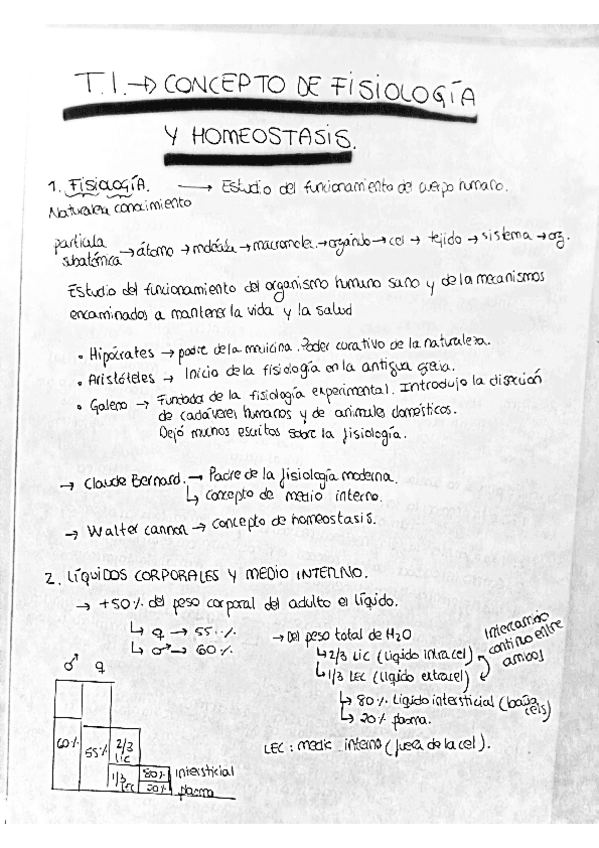 T.1. → CONCEPTO DE FISIOLOGÍA
Y HOMEOSTASIS.
1. FISIOLOGÍA. → Estudio del funcionamiento del cuerpo humano.
Naturaleza conocimiento
partícula subatómica → átomo → molécula → macromolec. → orgánulo → cel → tejido → sistema → org.
Estudio del funcionamiento del organismo humano sano y de la mecanismos
encaminados a mantener la vida y la salud
• Hipócrates → padre de la medicina. Poder curativo de la naturaleza.
• Aristóteles → Inicio de la fisiología en la antigua grecia.
• Galeno → Fundador de la fisiología experimental. Introdujo la disección
de cadáveres humanos y de animales domésticos.
Dejó muchos escritos sobre la fisiología.
→ Claude Bernard. → Padre de la fisiología moderna.
↳ concepto de medio interno.
→ Walter cannon → concepto de homeostasis.
2. LÍQUIDOS CORPORALES Y MEDIO INTERNO.
→ +50% del peso corporal del adulto es líquido.
↳ ♀ → 55%
↳ ♂ → 60%
→ Del peso total de H2O
↳ 2/3 LIC (líquido intracel)
↳ 1/3 LEC (líquido extracel)
Intercambio
continuo entre
ambos
↳ 80% Líquido intersticial (baña cels)
↳ 20% plasma.
LEC: medio interno (fuera de la cel).
♂ ♀
60% 55% 2/3 LIC
1/3 LEC 80% intersticial
20% plasma